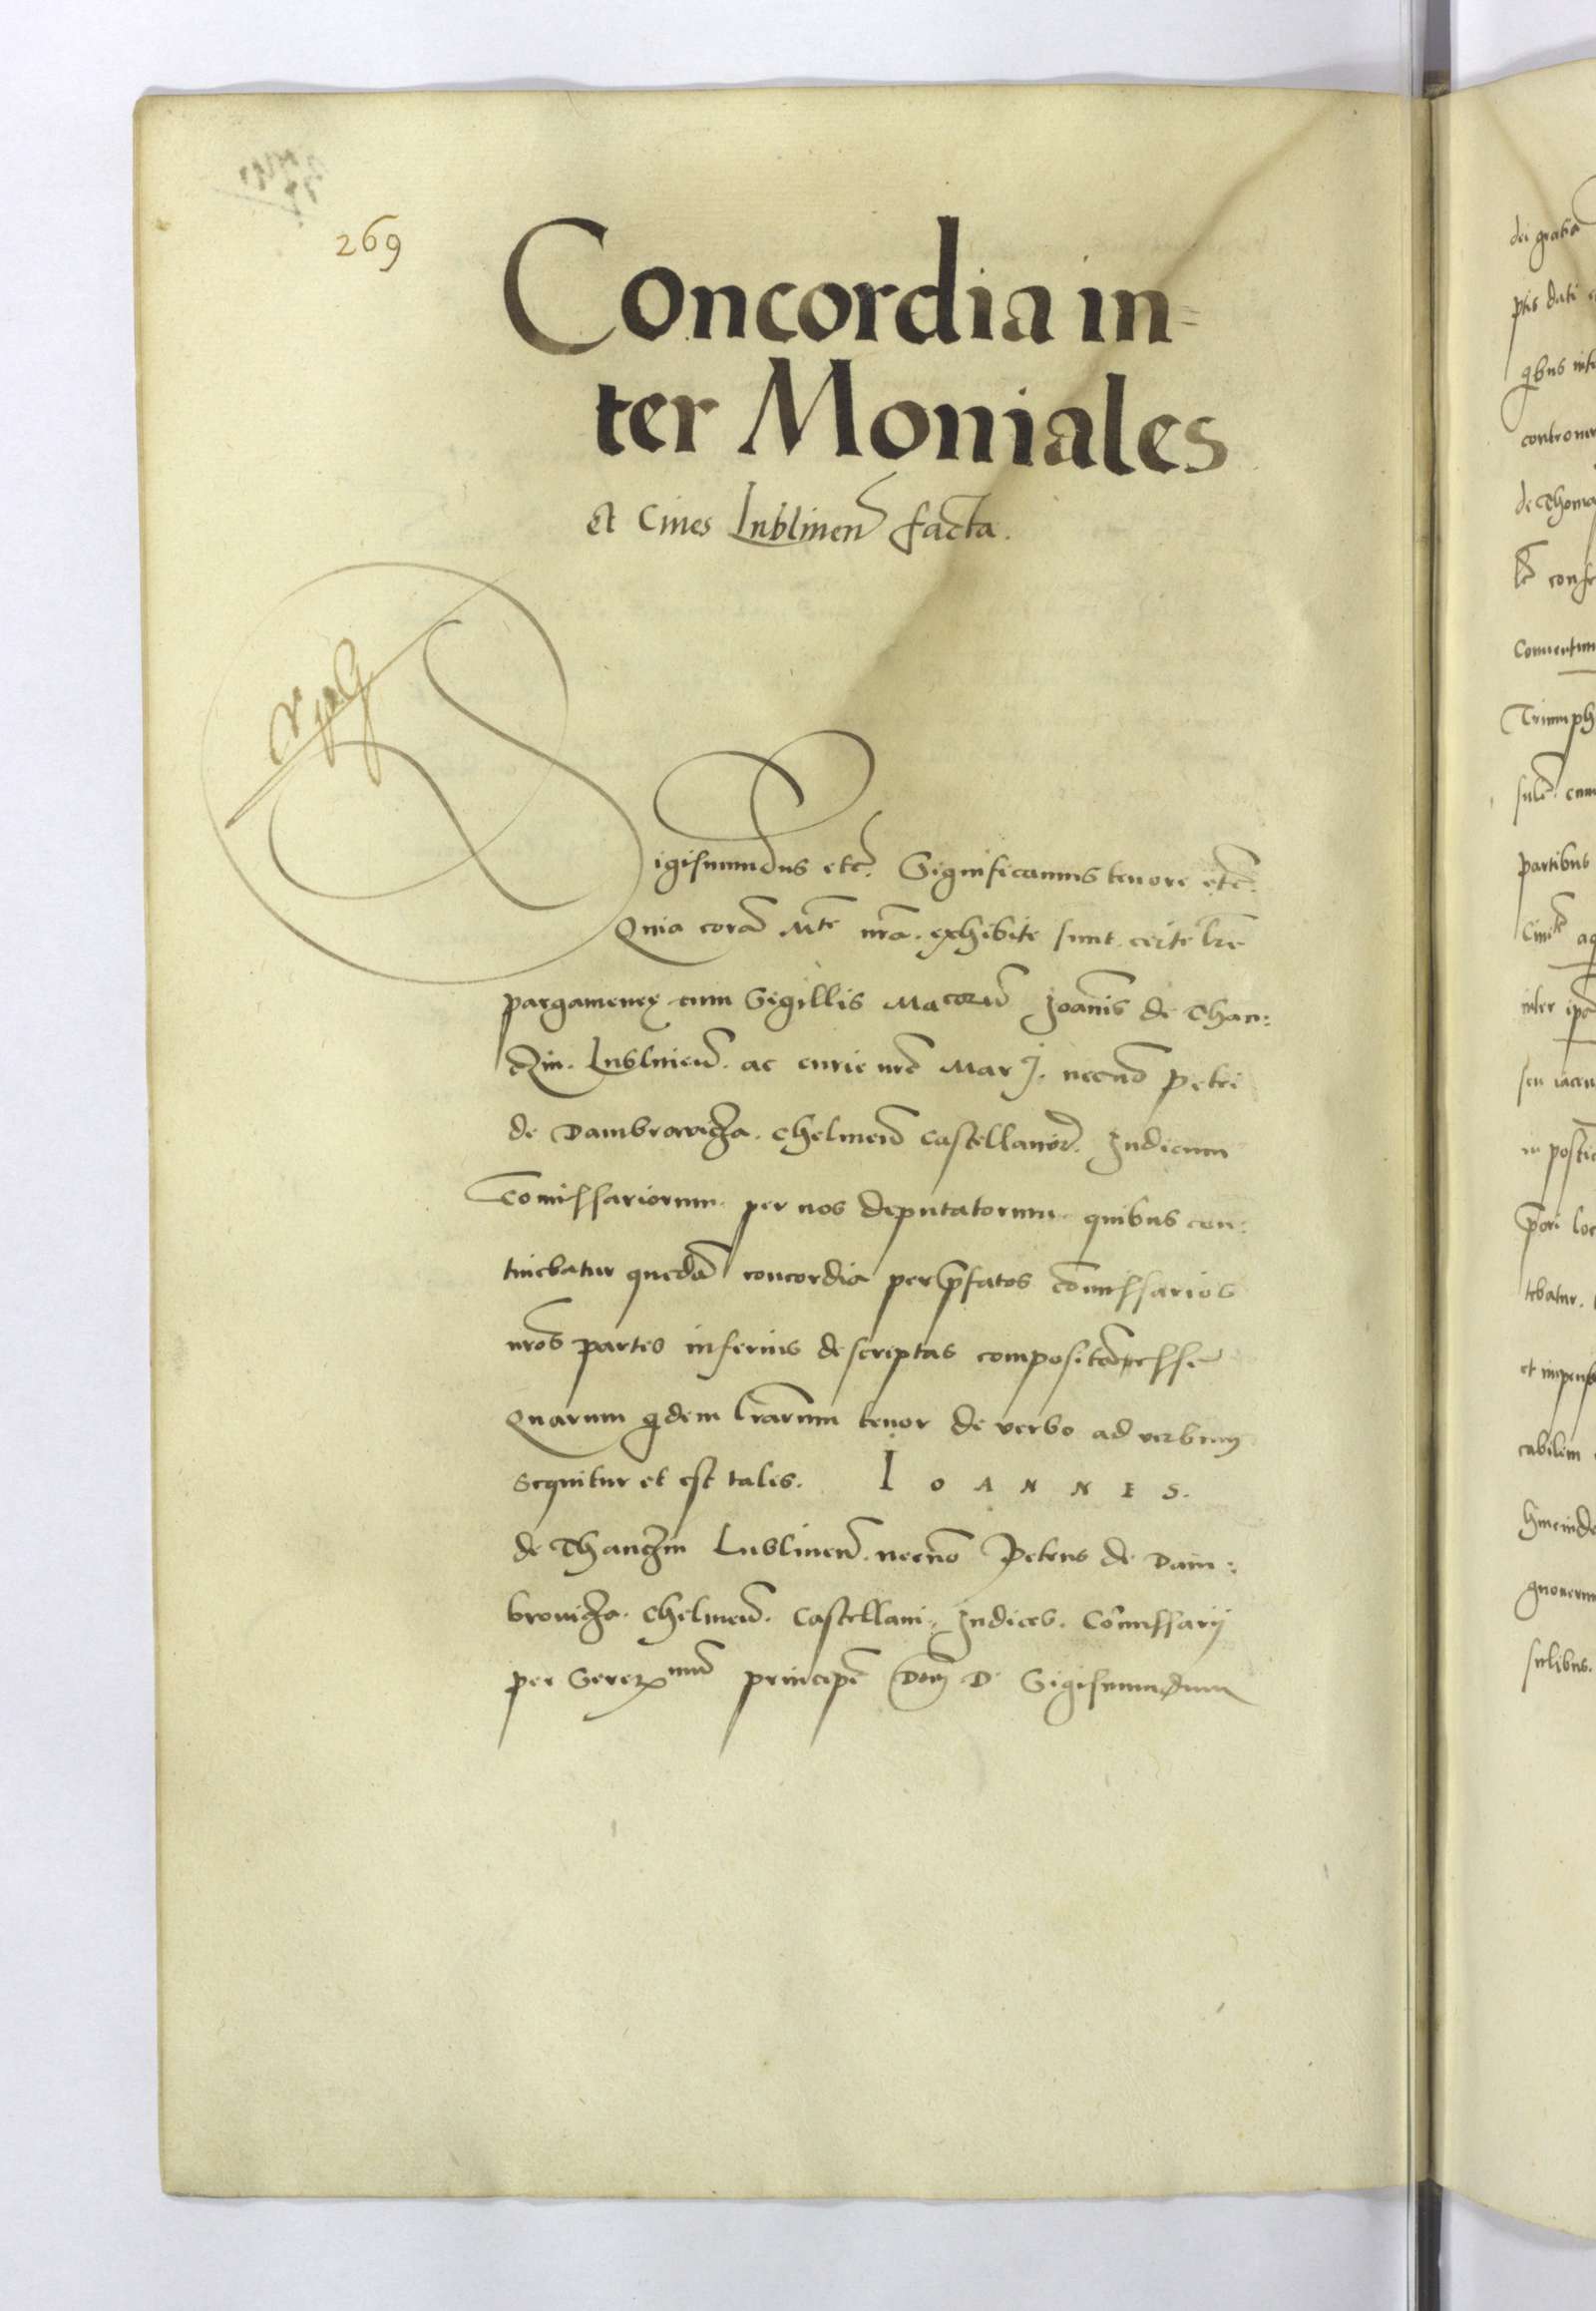 269
Concordia in=
ter Moniales
et Ciues Lublinen̄ facta.
Sigismundus etc̄. Significamus tenore etc̄.
Quia corā Mte nr̄a. exhibite sunt certe lrē
pargameneę cum Sigillis Macorū Joānis de Than:
czin. Lublineñ. ac curie nrē Mar j. necnō Petri
de Dambrowicza. Chelmeñ Castellanor̄. Judicum
Comissariorum per nos deputatorum quibus con:
tinebatur quedā concordia per p̄fatos Comissarios
nros partes inferius descriptas compositā esse
Quarum qdem lrarum tenor de verbo ad verbum
Sequitur et est talis. IOANNES.
de Thanczin Lublineñ. necnō Petrus de Dam:
brouicza. Chelmeñ. Castellani. Judices. Comissarij
per Serenmum principē Dom D. Sigismundum
dei gratia
ptis dati
qbus inte
controuer
de Thoma
conse
Conuentum
Triumph
partibus
Ciuite
inter ipā
seu iacen
in postic
loc
tebatur.
et impens
cabilem
hincinde
gnouerun
sulibus.